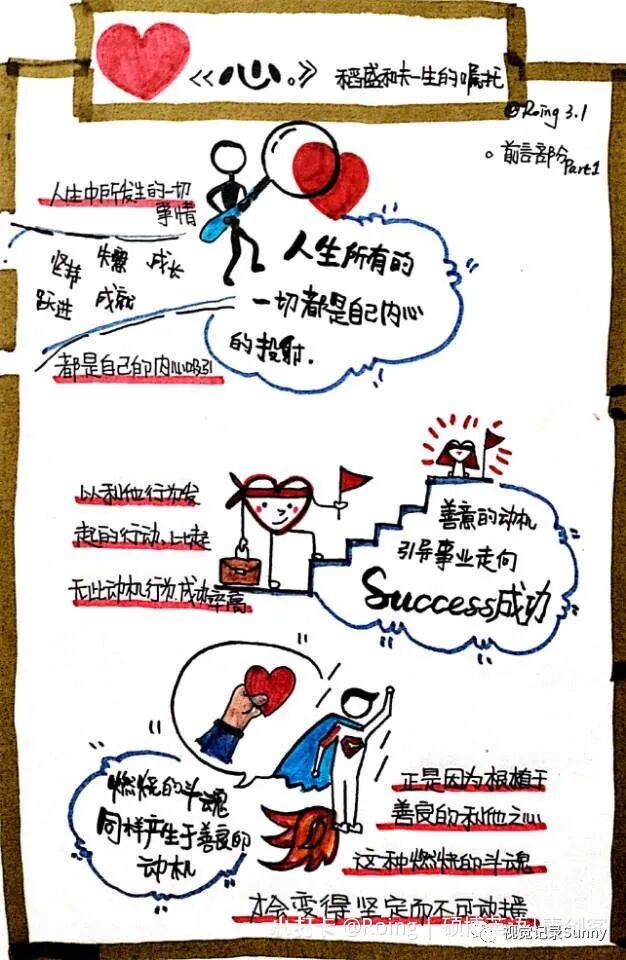 《心。》 稻盛和夫一生的嘱托
@Roing 3.1
。前言部分
Part1
人生中所发生的一切
事情
坚持 失意 成长
跃进 成就
都是自己的内心吸引
人生所有的
一切都是自己内心
的投射.
以利他行为发
起的行动、比起
无此动机行为成功率高
善意的动机
引导事业走向
Success成功
燃烧的斗魂
同样产生于善良的
动机
正是因为根植于
善良的利他之心
这种燃烧的斗魂
才会变得坚定而不可动摇
@Roing
视觉记录Sunny